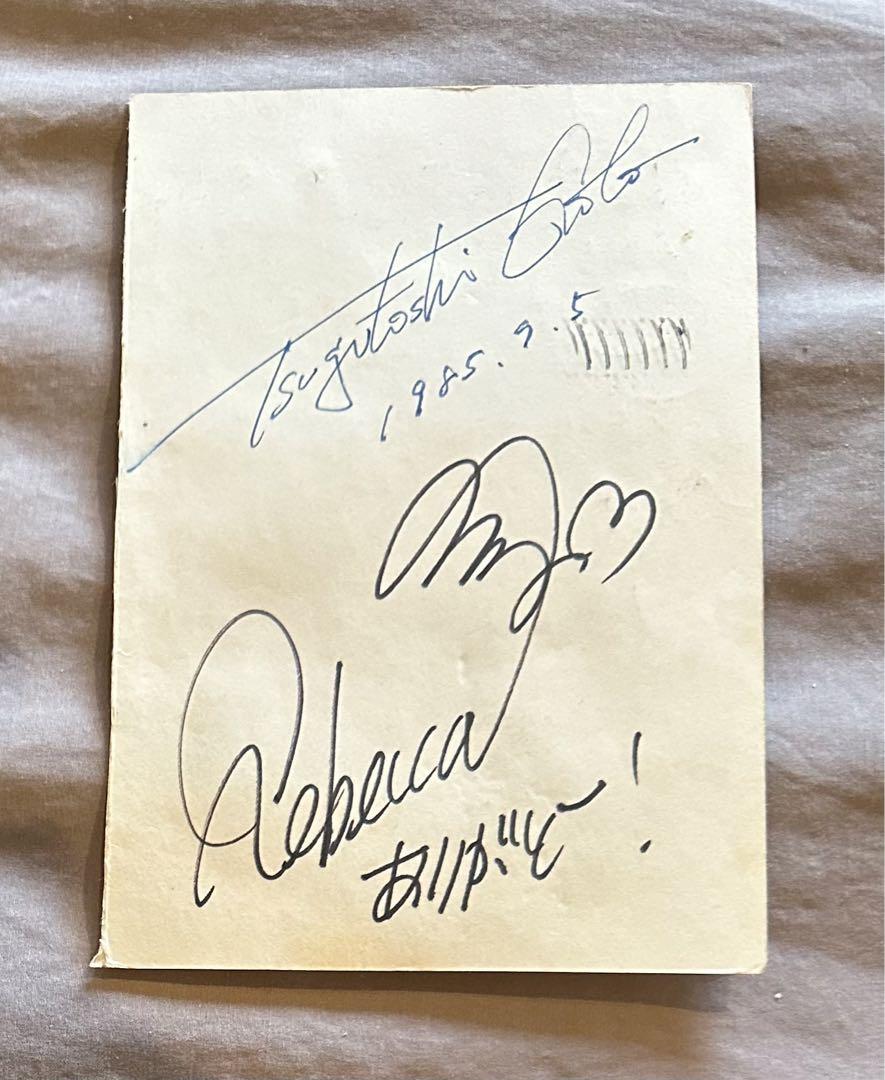 Tsugutoshi Goto
1985.9.5
Rebecca
ありがとー!